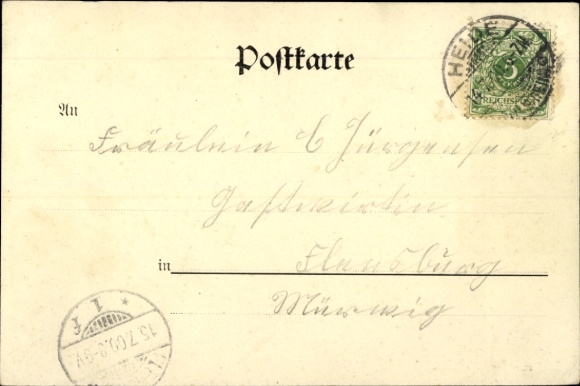 Postkarte
HEIDE
5
REICHSPOST
An
Fräulein C Jürgensen
Gastwirtin
in Flensburg
Mürwig
* 1 f
15.7.00.8-9V.